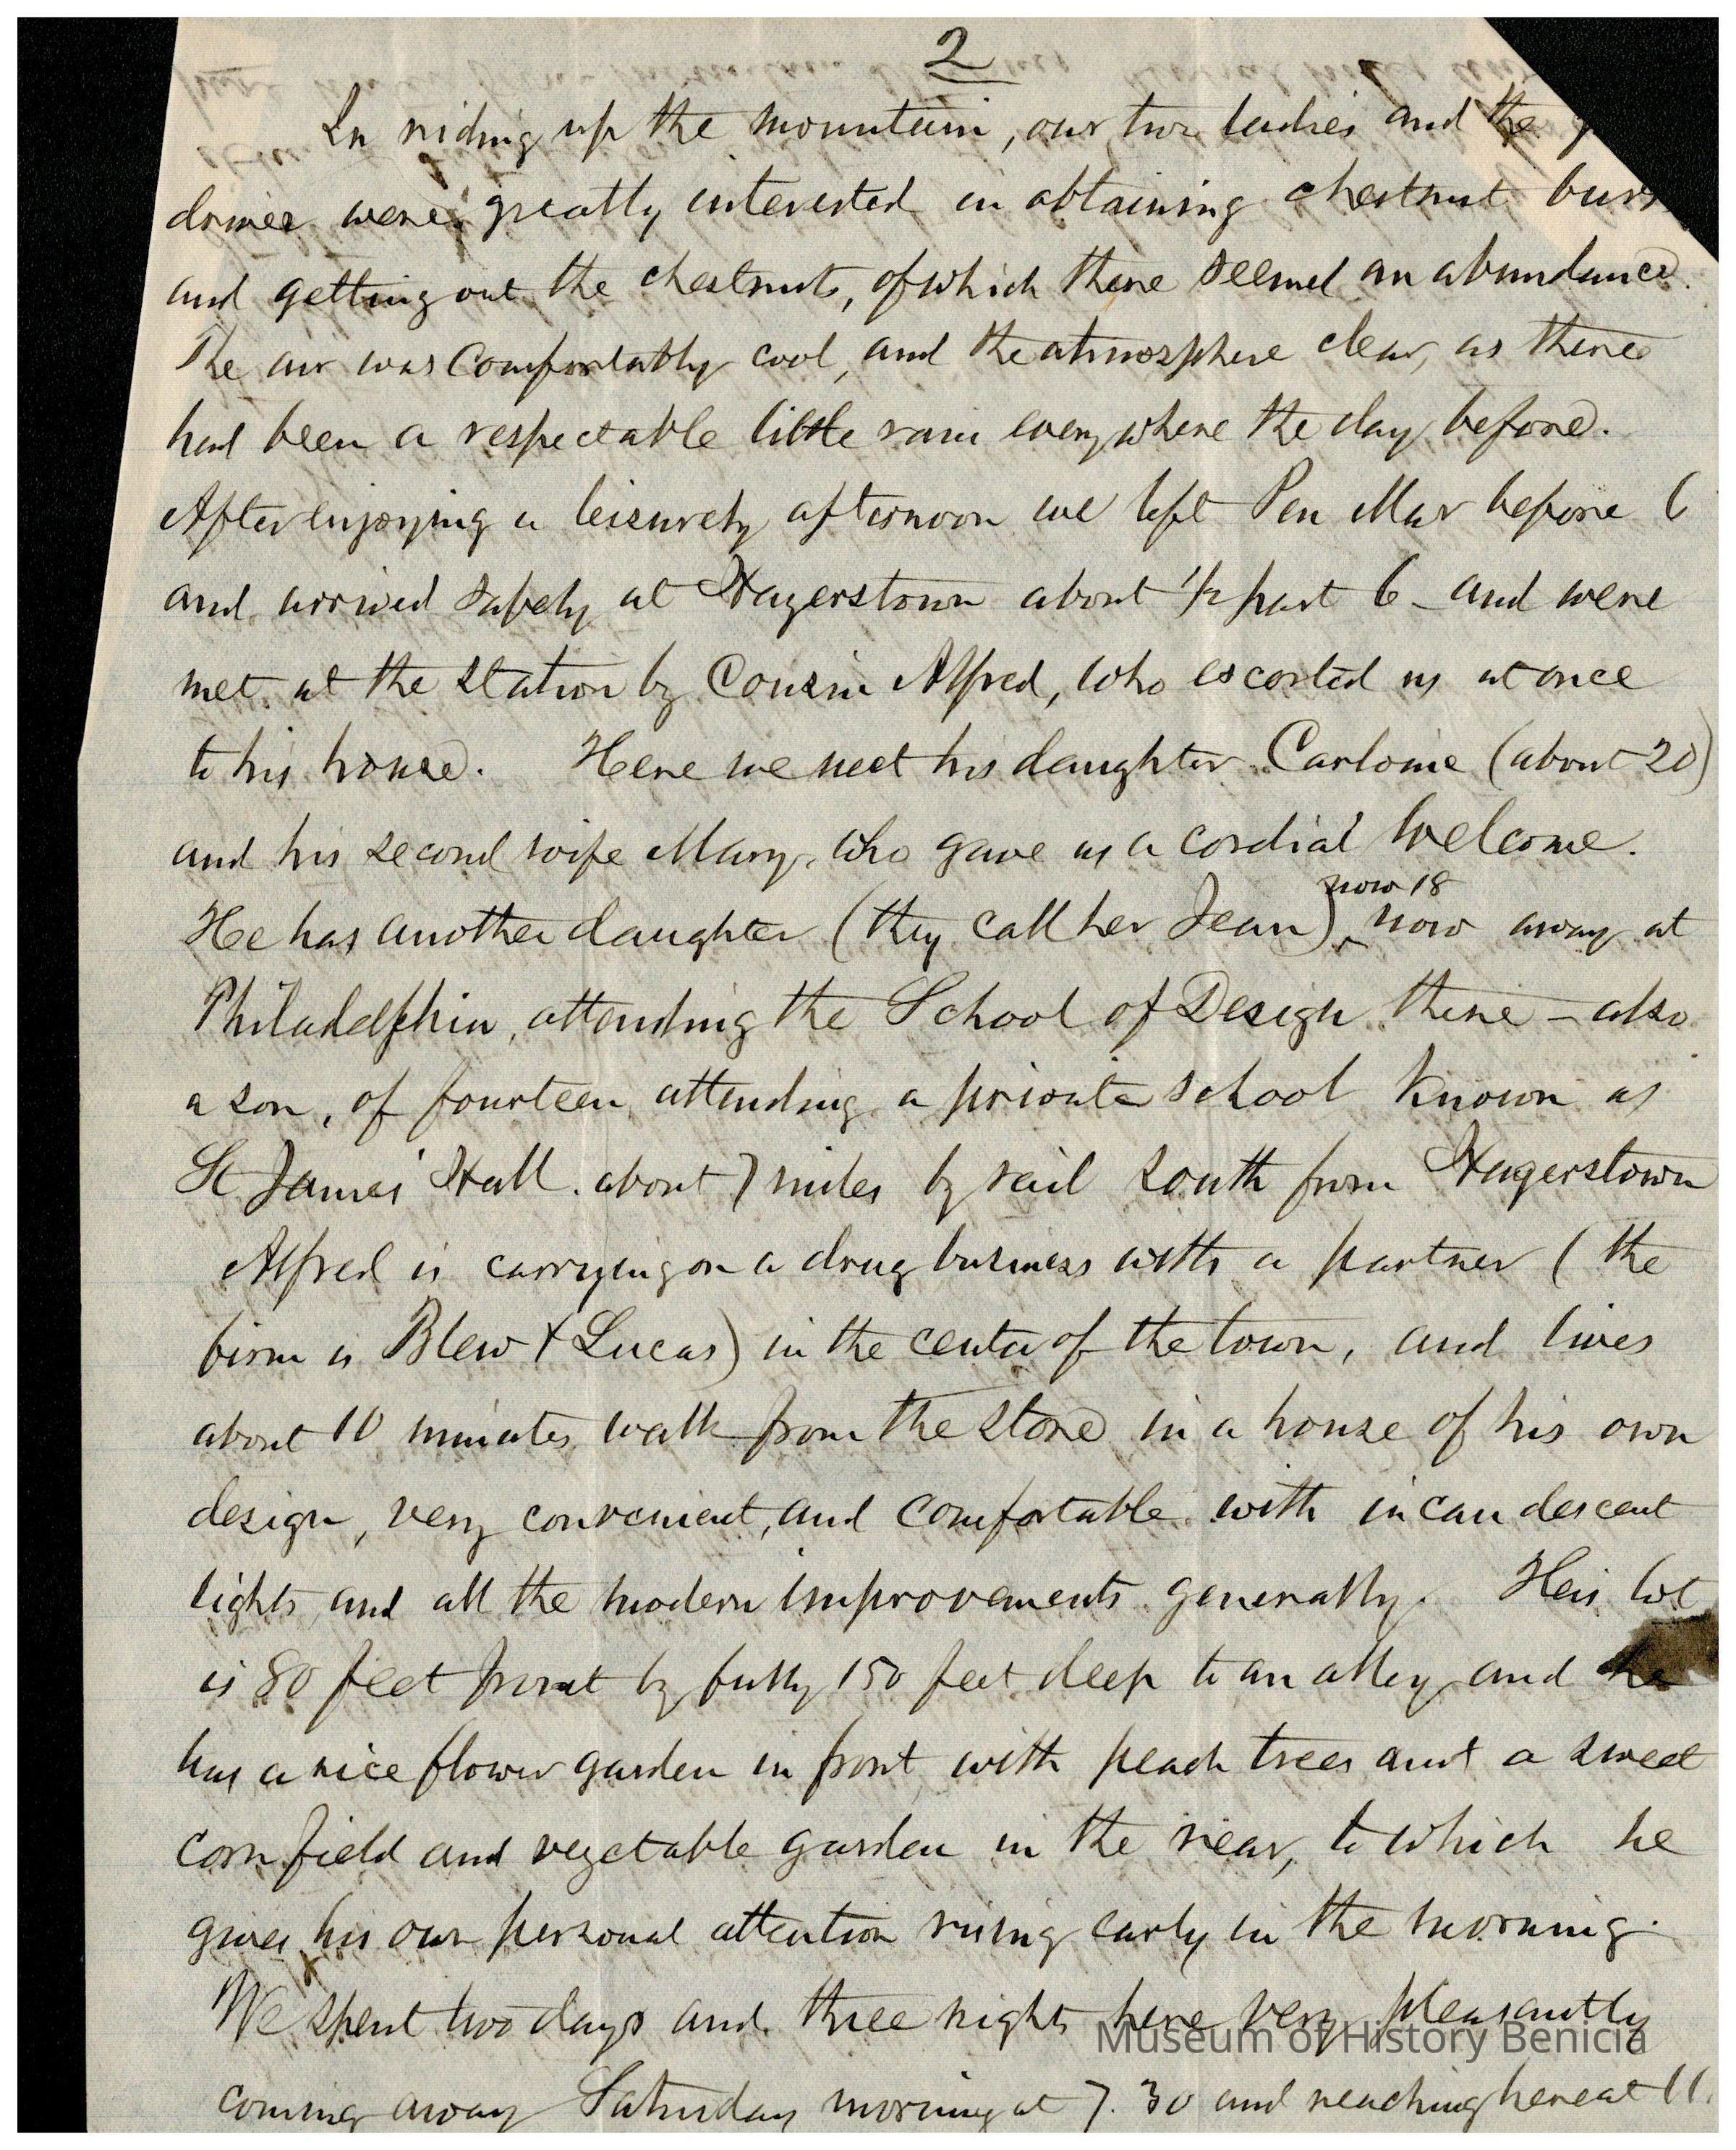 2
In riding up the mountain, our two ladies and the
driver were greatly interested in obtaining chestnut burrs
and getting out the chestnuts, of which there seemed an abundance.
The air was Comfortably cool, and the atmosphere clear, as there
had been a respectable little rain everywhere the day before.
After enjoying a leisurely afternoon we left Pen Mar before 6
and arrived safely at Hagerstown about 1/2 past 6 - and were
met at the station by Cousin Alfred, who escorted us at once
to his house. Here we meet his daughter Carloine (about 20)
and his second wife Mary, who gave us a cordial Welcome.
now 18
He has another daughter (they call her Jean)‸ now away at
Philadelphia, attending the School of Design there - also
a son, of fourteen attending a private school known as
St James' Hall. about 7 miles by rail south from Hagerstown
Alfred is carrying on a drug business with a partner (the
firm is Blew & Lucas) in the center of the town, and lives
about 10 minutes walk from the store in a house of his own
design, very convenient, and comfortable with incandescent
lights and all the modern improvements generally. His lot
is 80 feet front by fully 150 feet deep to an alley and he
has a nice flower garden in front with peach trees and a sweet
corn field and vegetable garden in the rear, to which he
gives his own personal attention rising early in the morning.
We spent two days and three nights here very pleasantly
coming away Saturday morning at 7.30 and reaching here at 11.
Museum of History Benicia